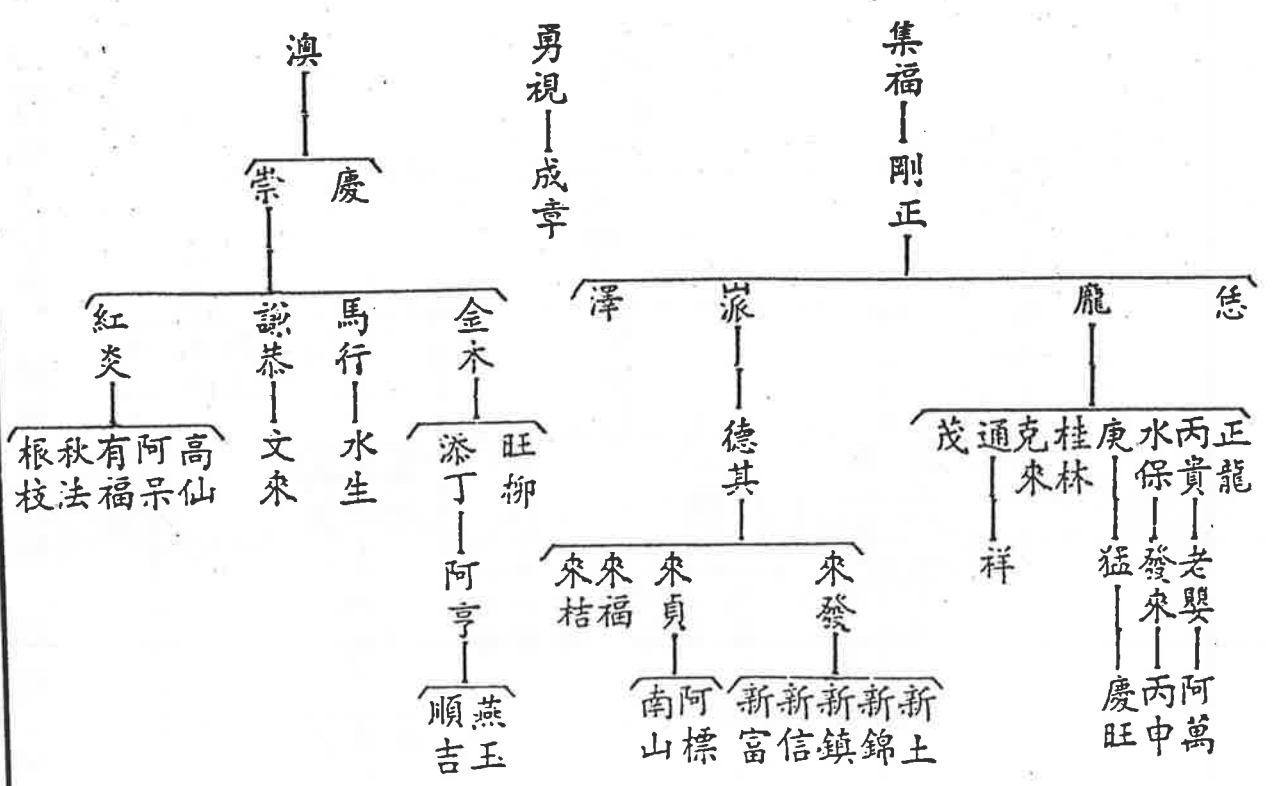 集福
剛正
恁
龐
派
澤
正龍
丙貴
水保
庚
桂林
克來
通
茂
老嬰
發來
猛
祥
阿萬
丙申
慶旺
德其
來發
來貞
來福
來桔
新土
新錦
新鎮
新信
新富
阿標
南山
勇視
成章
澳
慶
崇
金木
馬行
謙恭
紅炎
旺柳
添丁
水生
文來
高仙
阿呆
有福
秋法
根枝
阿亨
燕玉
順吉